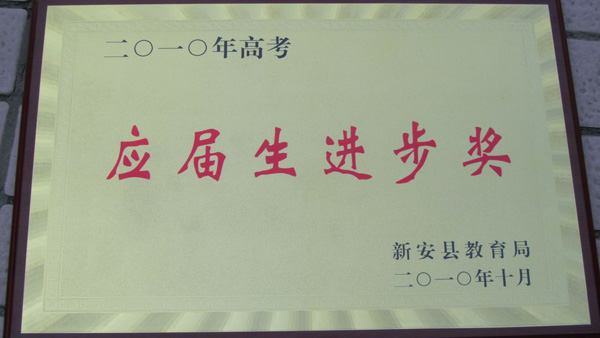 二〇一〇年高考
应届生进步奖
新安县教育局
二〇一〇年十月